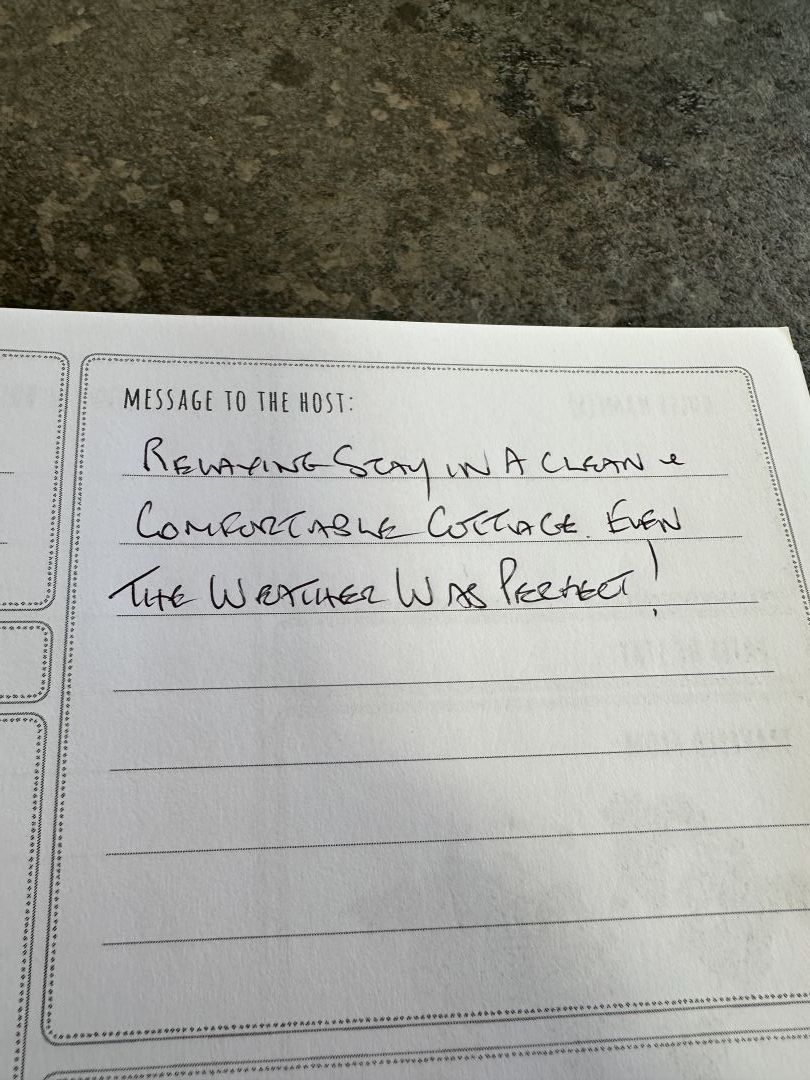 MESSAGE TO THE HOST:
RELAXING STAY IN A CLEAN &
COMFORTABLE COTTAGE. EVEN
THE WEATHER WAS PERFECT!